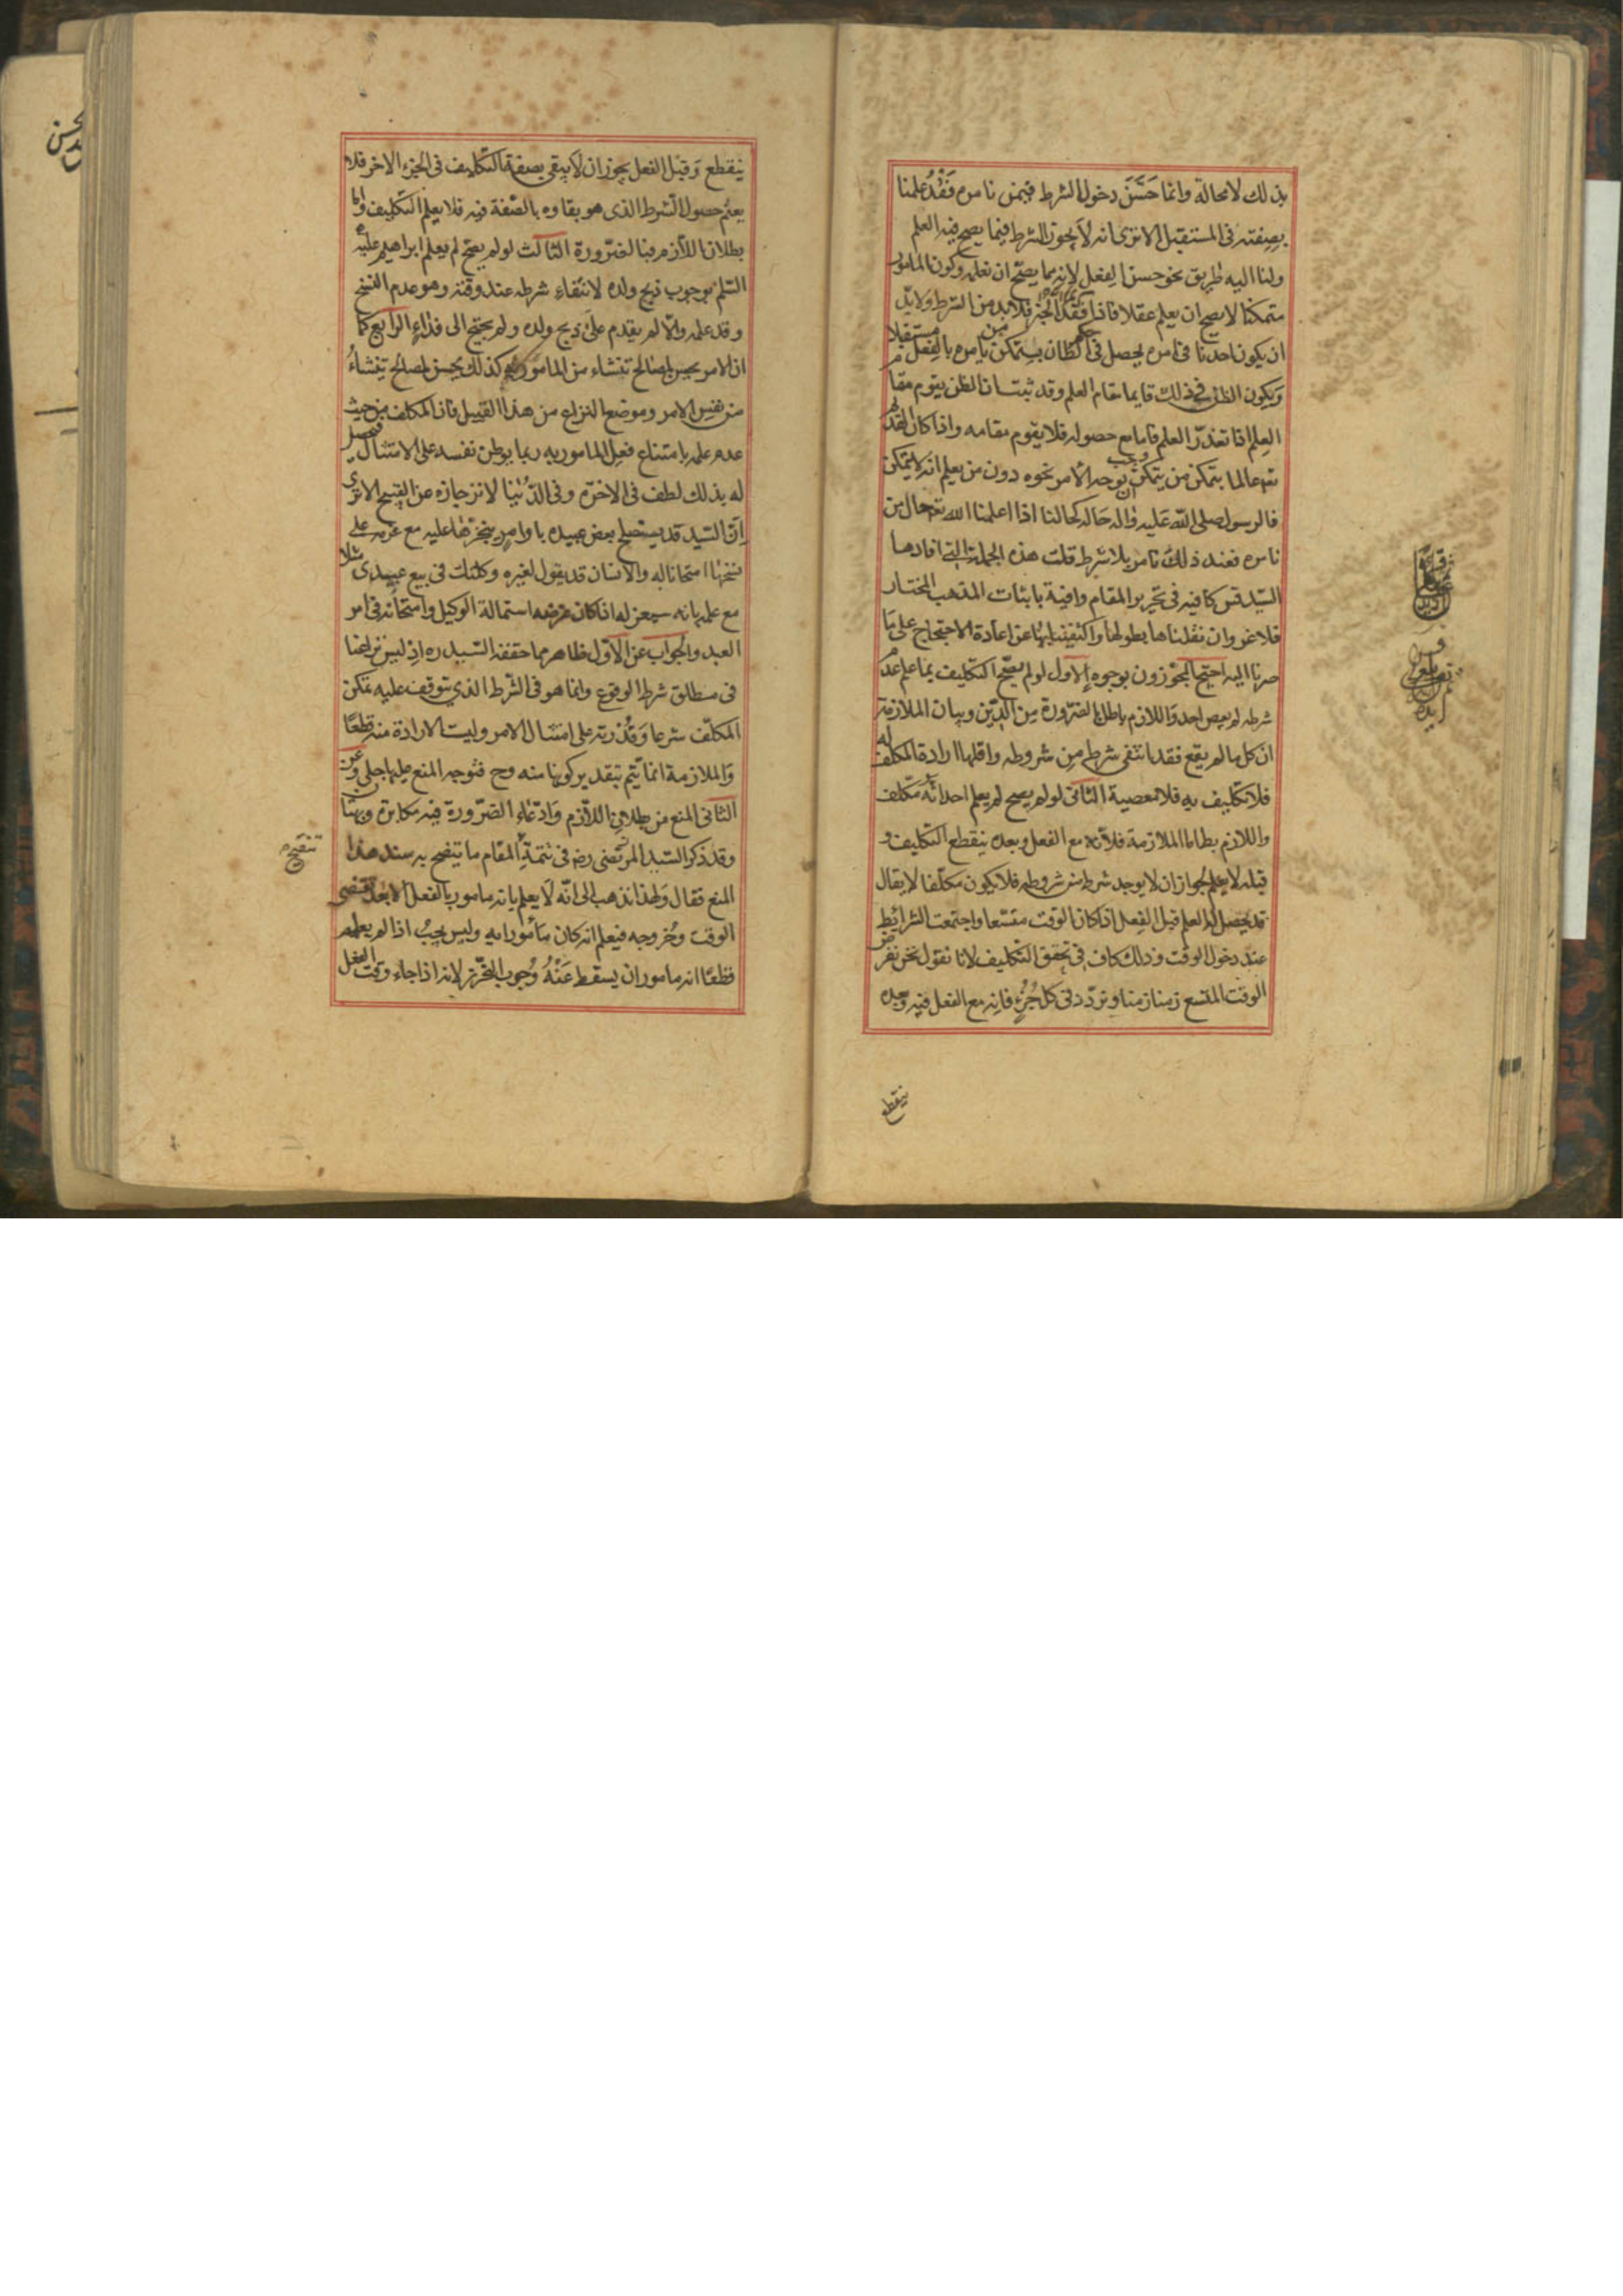 بذلك لا محالة وانما حَسَّنَ دخول الشرط فيمن نامره فَقْدُ علمنا
بصفته فى المستقبل الا ترى انه لا يجوز الشرط فيما يصح فيه العلم
ولنا اليه طريق نحو حسن الفعل لانه مما يصح ان نعلمه وكون المامور
متمكنا لا يصح ان يعلم عقلا فاذا فقد الخبر فلا بد من الشرط ولا بد
ان يكون احدنا فى امره يحصل فى حكم الظان بتمكن من يامره بالفعل مستقبلا
ويكون الظن فى ذلك قايما مقام العلم وقد ثبت ان الظن يقوم مقام
العلم اذا تعذر العلم فاما مع حصوله فلا يقوم مقامه واذا كان القديم
تعه عالما بتمكن من يتمكن وجب ان يوجه الامر نحوه دون من يعلم انه لا يتمكن
فالرسول صلى الله عليه واله حاله كحالنا اذا اعلمنا الله تعه حال من
نامره فعند ذلك نامر بلا شرط قلت هذه الجملة التى افادها
السيد قس كافيه فى تحرير المقام وافية باثبات المذهب المختار
فلا غرو ان نقلناها بطولها واكتفينا بها عن اعادة الاحتجاج على ما
صرنا اليه احتج المجوزون بوجوه الاول لو لم يصح التكليف بما علم عدم
شرطه لم يعص احد واللازم باطل بالضرورة من الدين وبيان الملازمة
ان كل ما لم يقع فقد انتفى شرط من شروطه واقلها ارادة المكلف له
فلا تكليف به فلا معصية الثانى لو لم يصح لم يعلم احد انه مكلف
واللازم بط اما الملازمة فلانه مع الفعل وبعده ينقطع التكليف و
قبله لا يعلم لجواز ان لا يوجد شرط من شروطه فلا يكون مكلفا لا يقال
قد يحصل له العلم قبل الفعل اذا كان الوقت متسعا واجتمعت الشرائط
عند دخول الوقت وذلك كاف فى تحقق التكليف لانا نقول نحن نفرض
الوقت المتسع زمنا زمنا ونردد فى كل جُزءٍ فانه مع الفعل فيه وبعده
ينقطع
ينقطع وقبل الفعل يجوز ان لا يبقى بصفة التكليف فى الجزء الاخر فلا
يعلم حصول الشرط الذى هو بقاوه بالصفة فيه فلا يعلم التكليف واما
بطلان اللازم فبالضرورة الثالث لو لم يصح لم يعلم ابراهيم عليه
السلم بوجوب ذبح ولده لانتفاء شرطه عند وقته وهو عدم النسخ
وقد علمه والا لم يقدم على ذبح ولده ولم يحتج الى فداء الرابع كما
ان الامر يحسن لمصالح تنشاء من المامور به كذلك يحسن لمصالح تنشاءُ
من نفس الامر وموضع النزاع من هذا القبيل فان المكلف من حيث
عدم علمه بامتناع فعل المامور به ربما يوطن نفسه على الامتثال فيحصل
له بذلك لطف فى الاخرة وفى الدنيا لانزجاره عن القبيح الا ترى
ان السيد قد يستصلح بعض عبيده باوامر ينجزها عليه مع عزمه على
نسخها امتحانا له والانسان قد يقول لغيره وكلتك فى بيع عبدى مثلا
مع علمه بانه سيعزله اذا كان غرضه استمالة الوكيل وامتحانه فى امر
العبد والجواب عن الاول ظاهر مما حققه السيد ره اذ ليس نزاعنا
فى مطلق شرط الوقوع وانما هو فى الشرط الذى يتوقف عليه تمكن
المكلف شرعا وقدرته على امتثال الامر وليست الارادة منه قطعًا
والملازمة انما يتم بتقدير كونها منه وح فتوجه المنع عليها جلى وعن
الثانى المنع من بطلان اللازم وادعاء الضرورة فيه مكابرة وبهتان
وقد ذكر السيد المرتضى رضه فى تتمة المقام ما يتضح به سند هذا
المنع فقال ولهذا نذهب الى انه لا يعلم بانه مامور بالفعل الا بعد تقضى
الوقت وخروجه فيعلم انه كان مأمورا به وليس يجب اذا لم يعلم
قطعًا انه مامور ان يسقط عَنْهُ وجوب التحرز لانه اذا جاء وقت الفعل